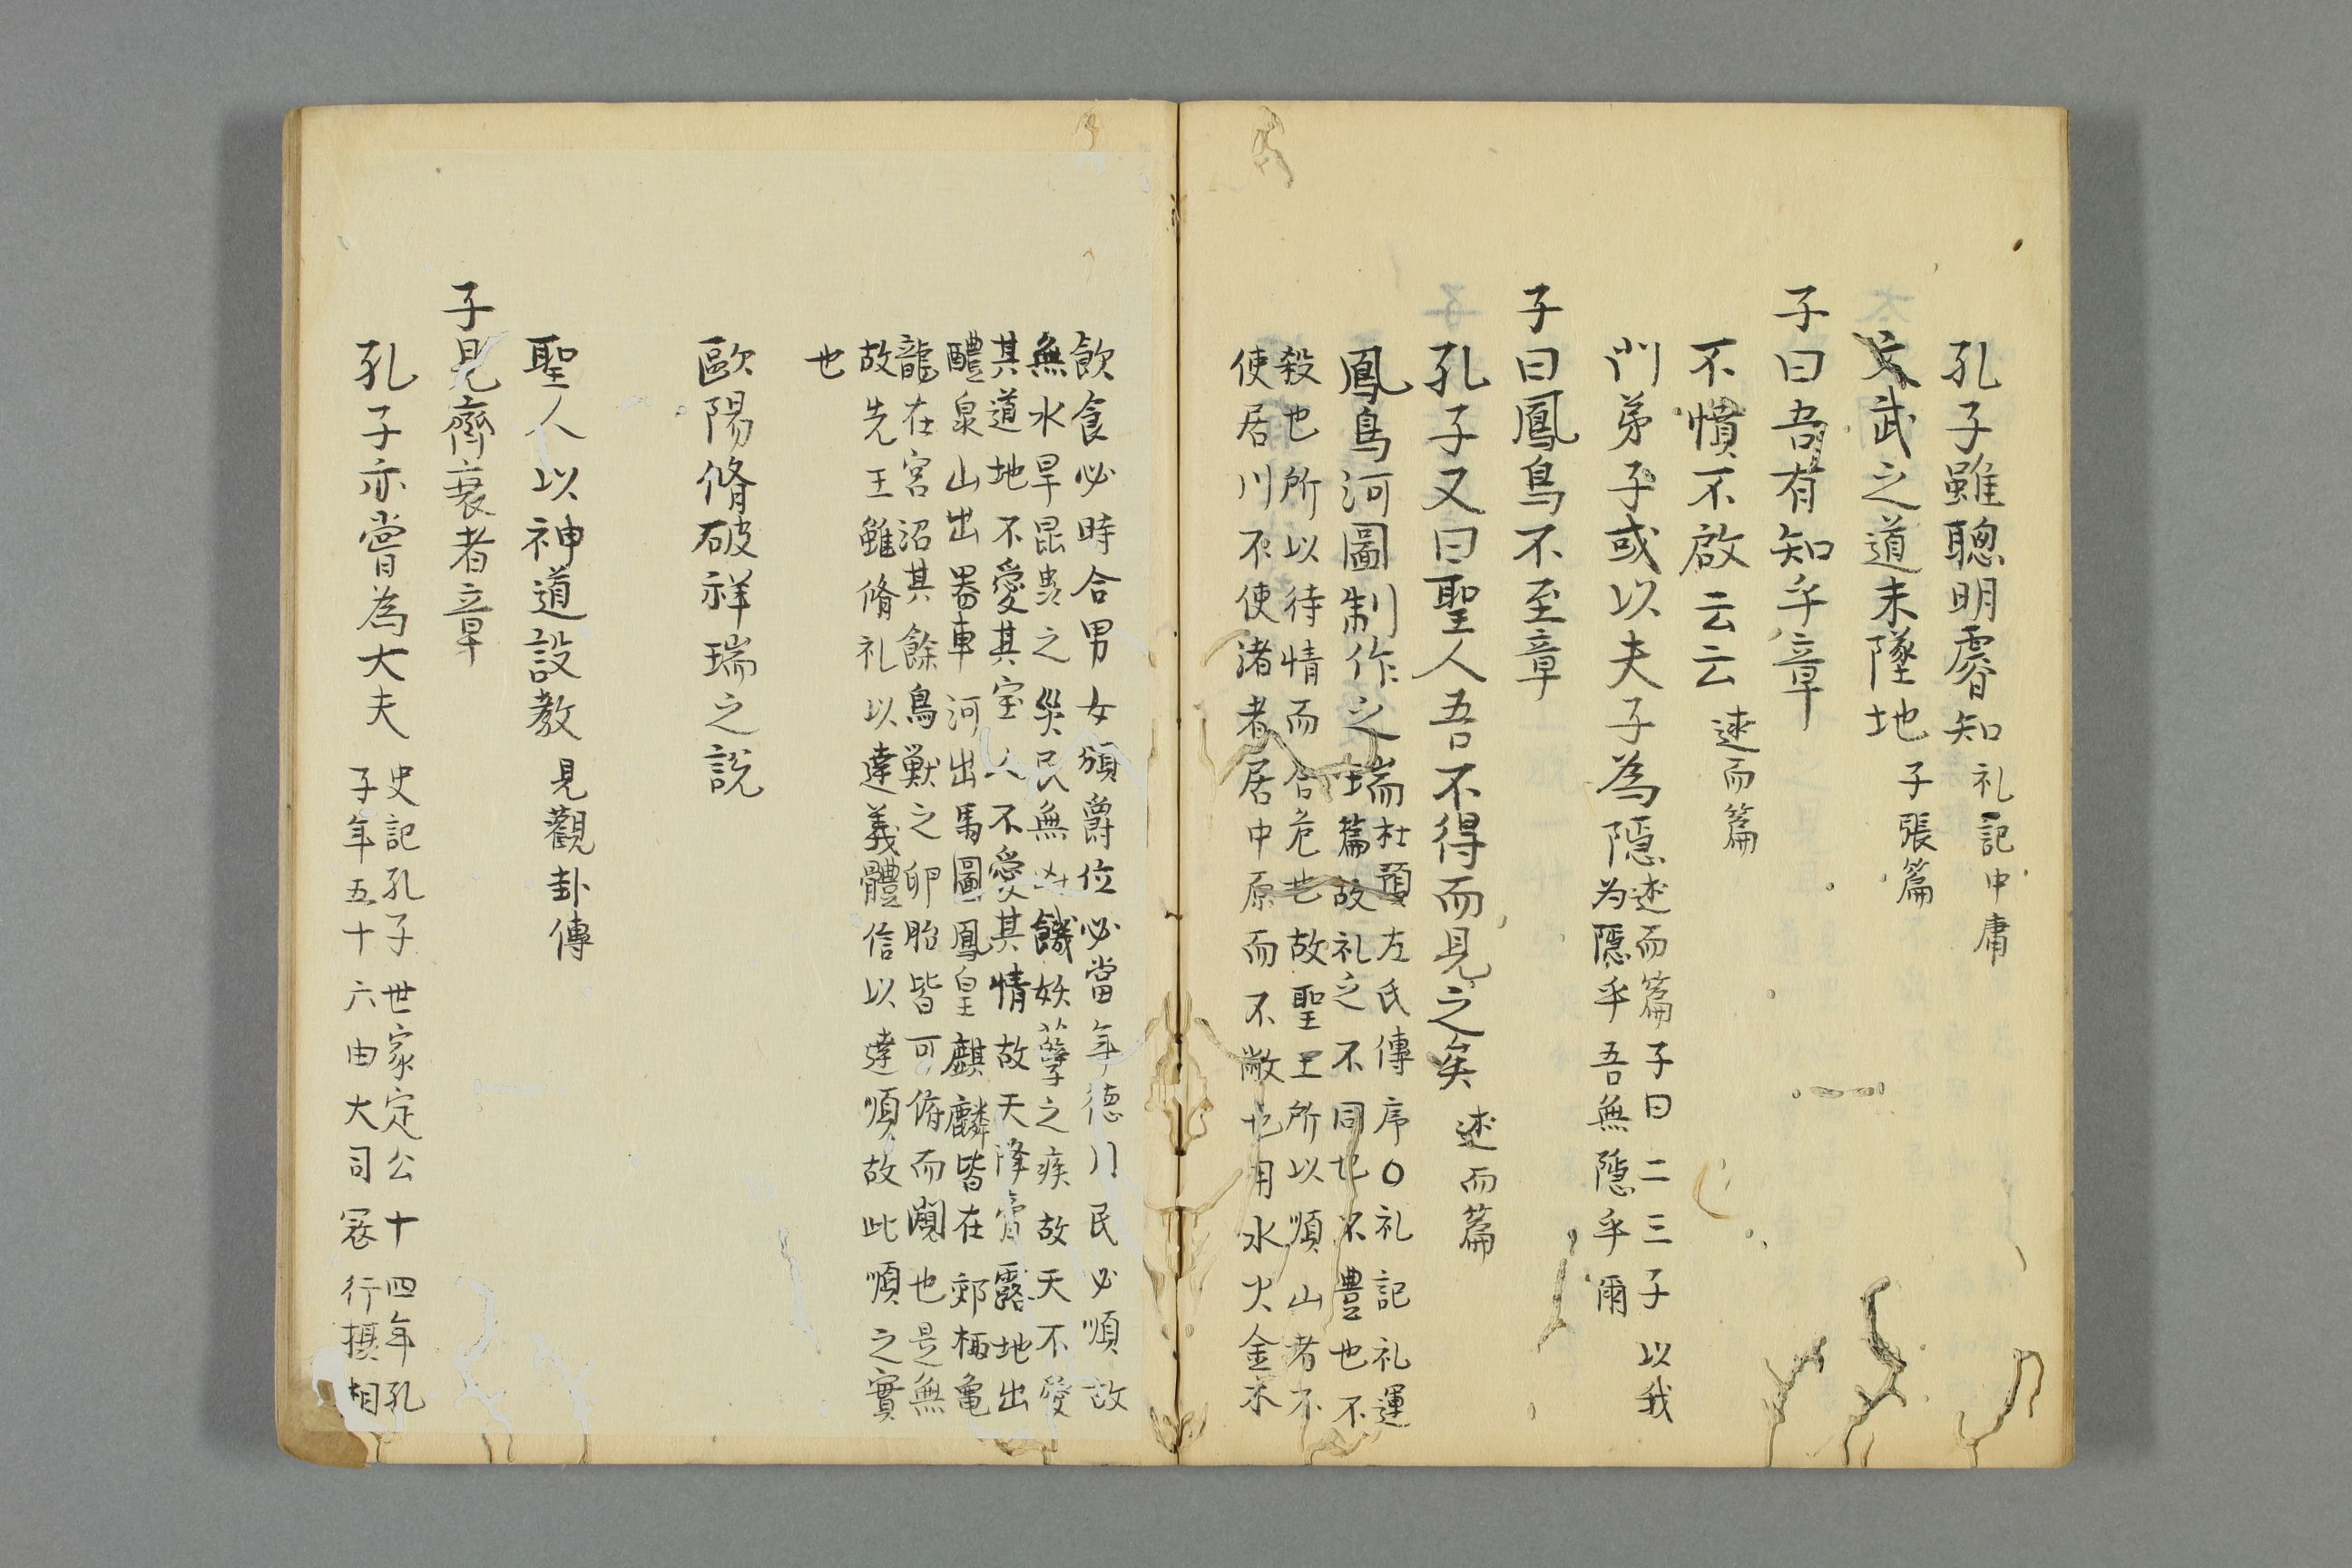 孔子雖聰明睿知 礼記中庸
文武之道未墜地 子張篇
子曰吾有知乎章
不憤不啟云云 述而篇
門弟子或以夫子為隱 述而篇子曰二三子以我
为隱乎吾無隱乎爾
子曰鳳鳥不至章
孔子又曰聖人吾不得而見之矣 述而篇
鳳鳥河圖制作之瑞 杜預左氏傳序○礼記礼運
篇故礼之不同也不豊也不
殺也所以待情而合危也故聖王所以順山者不
使居川不使渚者居中原而不敝也用水火金木
飲食必時合男女頒爵位必當年德川民必順故
無水旱昆蟲之災民無凶饑妖孽之疾故天不愛
其道地不愛其宝人不愛其情故天降膏露地出
醴泉山出器車河出馬圖鳳皇麒麟皆在郊棷亀
龍在宮沼其餘鳥獸之卵胎皆可俯而闚也是無
故先王雖脩礼以達義體信以達順故此順之實
也
歐陽脩破祥瑞之説
聖人以神道設教 見觀卦傳
子見齊衰者章
孔子亦嘗為大夫 史記孔子世家定公十四年孔
子年五十六由大司冦行摂相